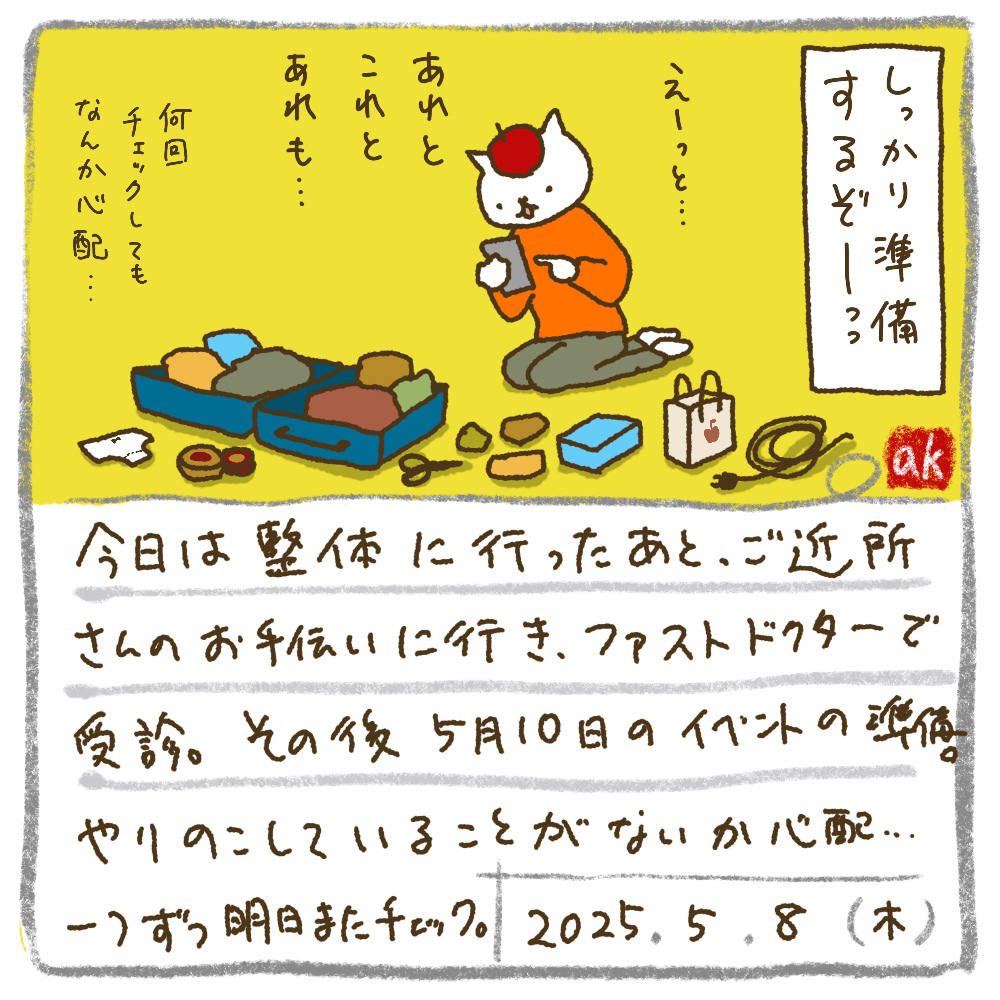 しっかり準備
するぞーっっ
えーっと…
あれと
これと
あれも…
何回
チェックしても
なんか心配…
ak
今日は整体に行ったあと、ご近所
さんのお手伝いに行き、ファストドクターで
受診。その後5月10日のイベントの準備。
やりのこしていることがないか心配…
一つずつ明日またチェック。
2025.5.8(木)